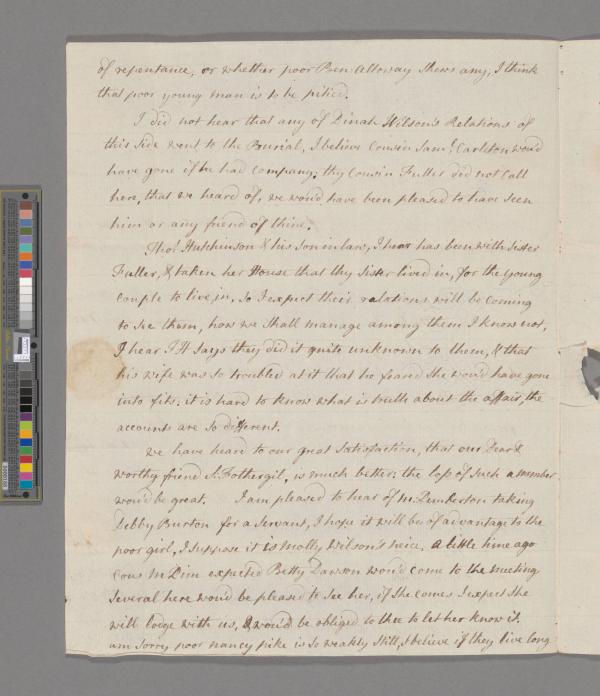 of repentance, or whether poor Ben: Alloway Shews any, I think
that poor young man is to be pitied.
I did not hear that any of Dinah Wilson's Relations of
this Side went to the Burial, I believe Cousin Sam: Carleton wou'd
have gone if he had Company; thy Cousin Fuller did not Call
here, that we heard of, we wou'd have been pleased to have seen
him or any friend of thine.
Tho: Hutchinson & his Son in law, I hear has been with Sister
Fuller, & taken her House that thy Sister lived in, for the young
Couple to live in, So I expect their relations will be Coming
to See them, how we Shall manage among them I know not,
I hear T H Says they did it quite unknown to them, & that
his wife was So troubled at it that he feared She wou'd have gone
into fits: it is hard to know what is truth about the affair, the
accounts are So different.
We have heard to our great Satisfaction, that our Dear &
worthy friend S: Fothergil, is much better; the loss of Such a member
wou'd be great. I am pleased to hear of M: Pemberton taking
Debby Burton for a Servant, I hope it will be of advantage to the
poor girl, I Suppose it is Molly Wilson's neice, a little time ago
Cous: M Dim expected Betty Dawson wou'd come to the meeting
Several here wou'd be pleased to See her, if She Comes I expect She
will lodge with us, & wou'd be obliged to thee to let her know it.
am Sorry poor nancy pike is So weakly Still, I believe if they live long